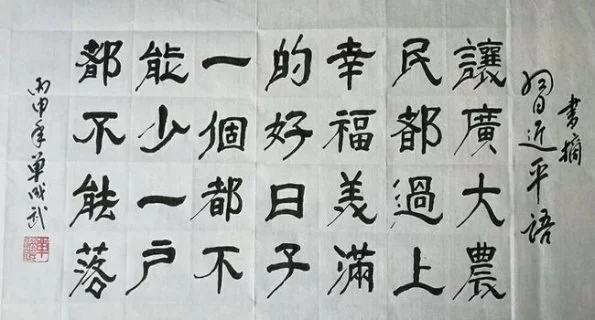 書摘
習近平語
讓廣大農
民都過上
幸福美滿
的好日子
一個都不
能少一戶
都不能落
丙申年單成武